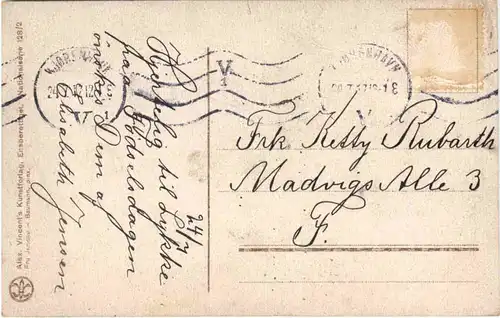 24/7
Hjertelig til Lykke
paa Fødselsdagen
ønskes Dem af
Elisabeth Jensen
Frk Ketty Rubarth
Madvigs Alle 3
F.
KJØBENHAVN
V
1
KJØBENHAVN
V
Alex. Vincent's Kunstforlag, Eneberettiget, Nationalserie 128/2